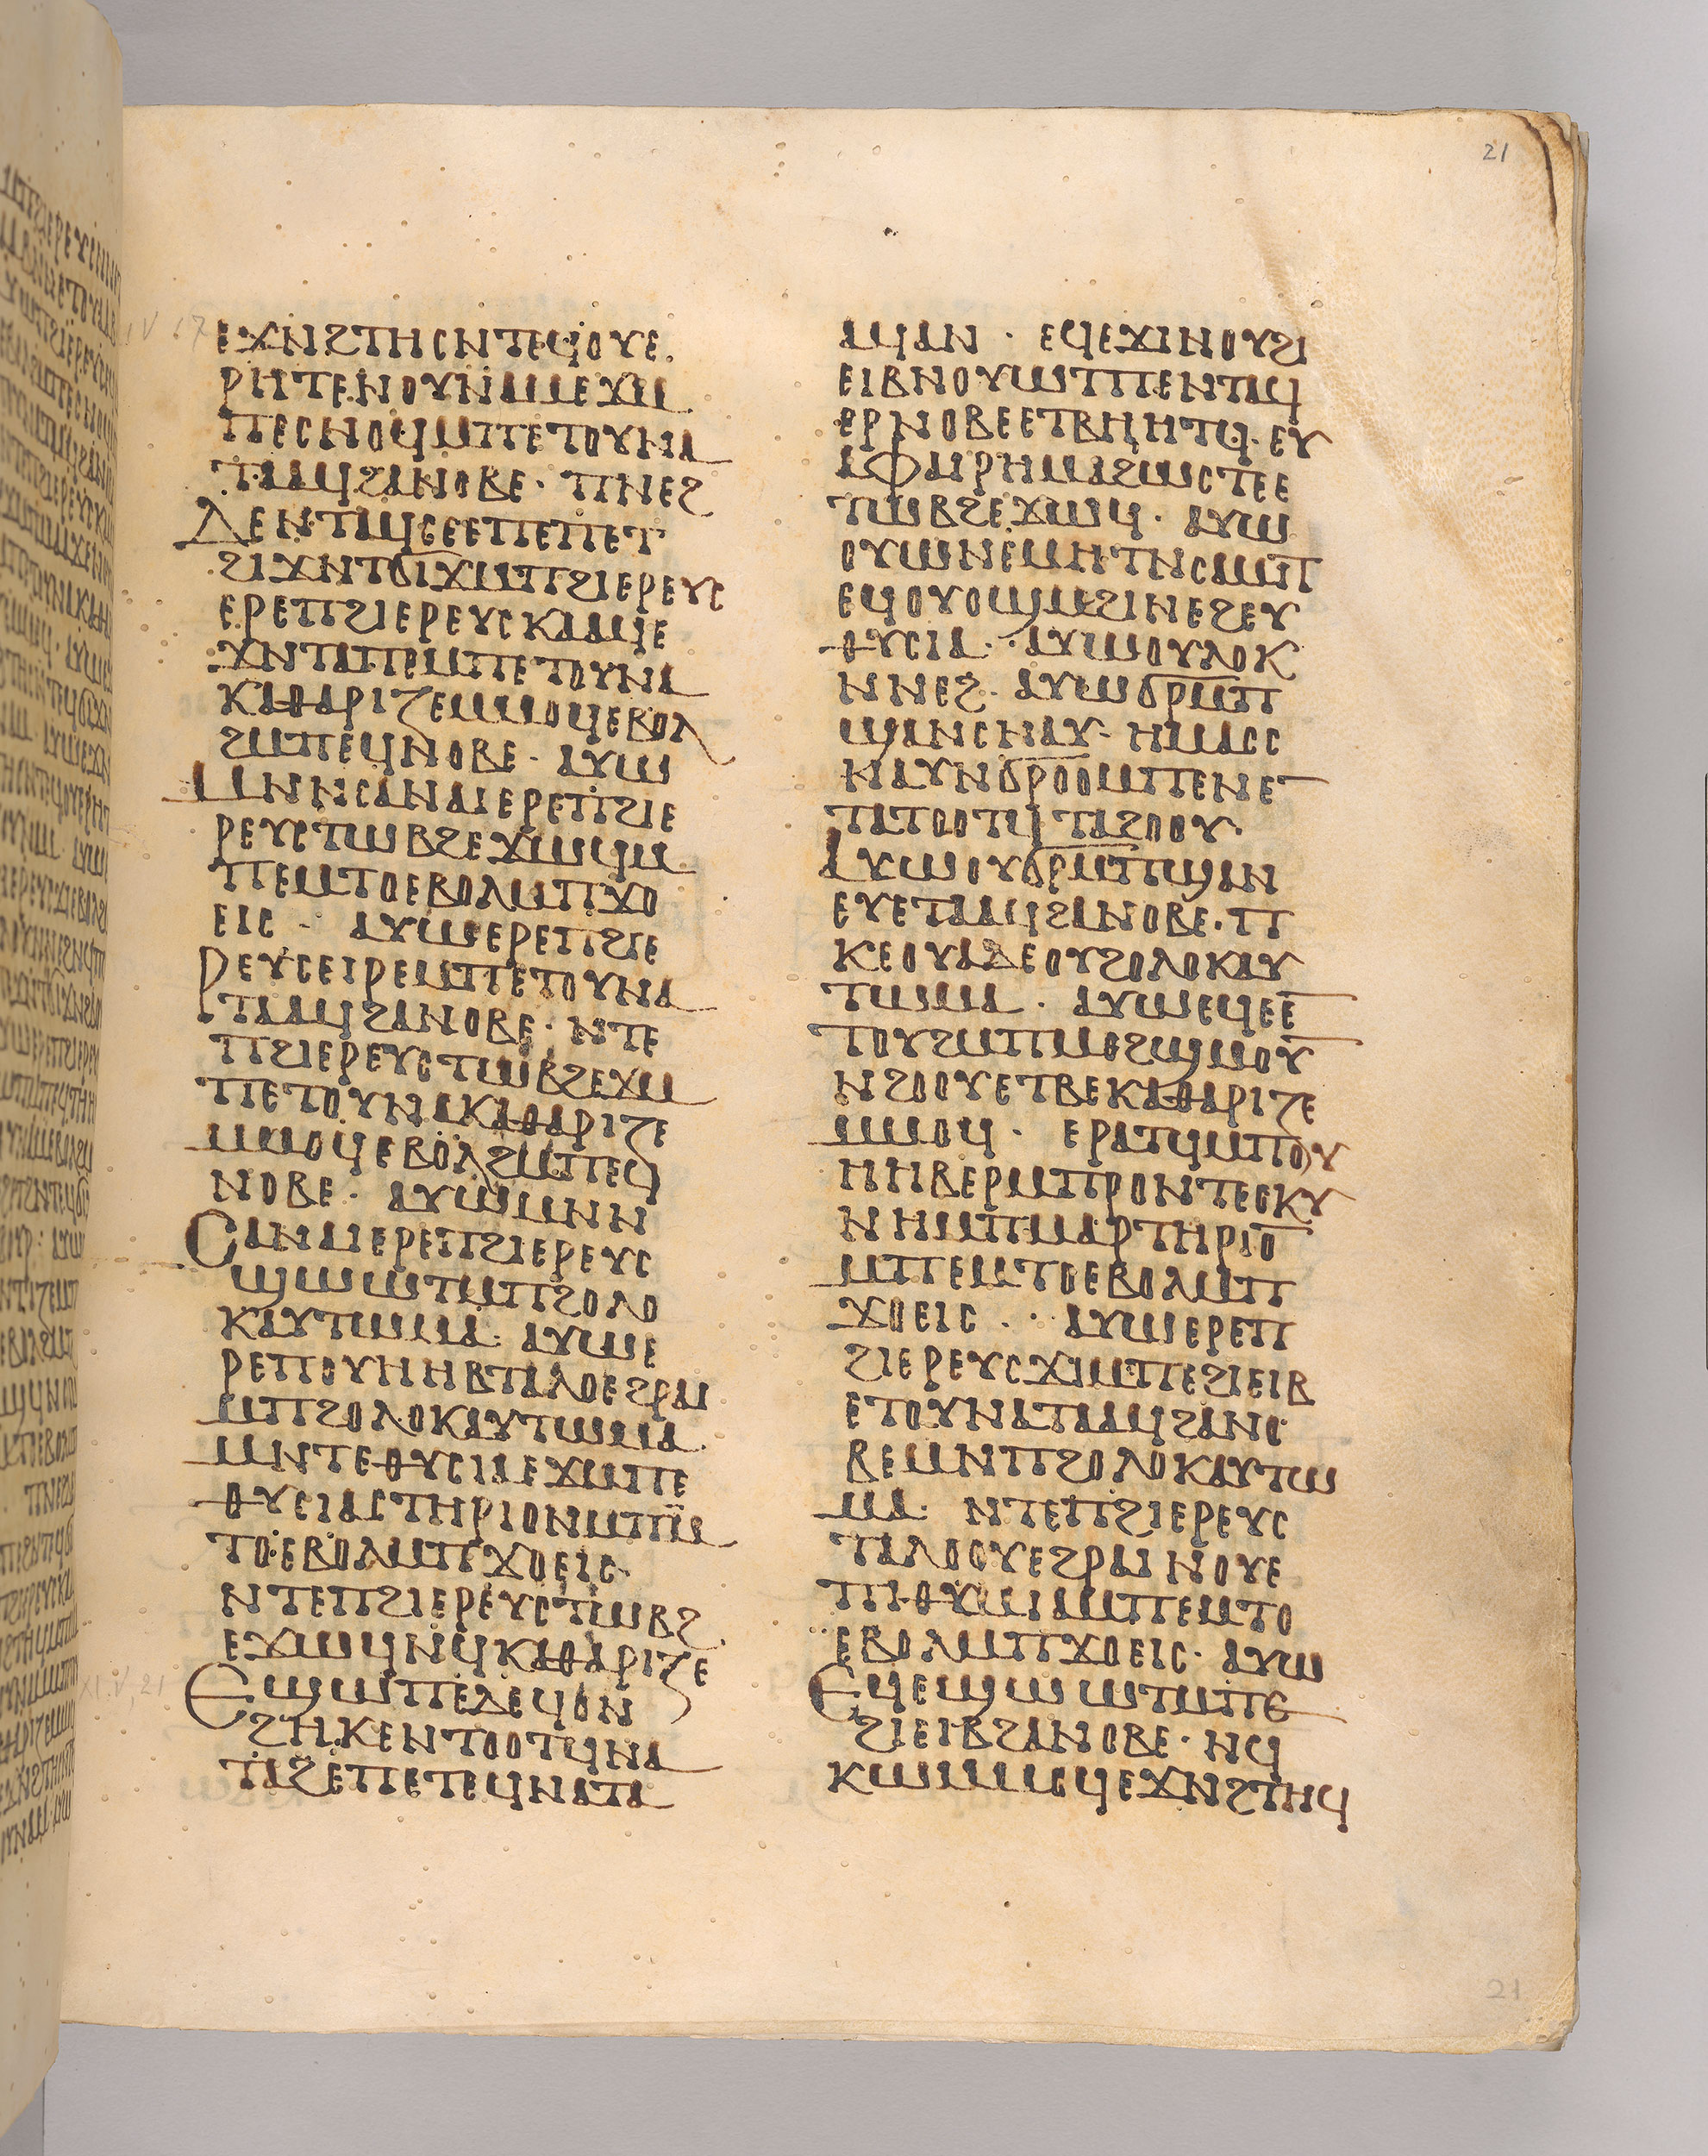 21
ⲉϫⲛϩⲧⲏⲥⲛⲧⲉϥⲟⲩⲉ
ⲣⲏⲧⲉⲛⲟⲩⲛⲁⲙⲉϫⲙ
ⲡⲉⲥⲛⲟϥⲙⲡⲉⲧⲟⲩⲛⲁ
ⲧⲁⲁϥϩⲁⲛⲟⲃⲉ· ⲡⲛⲉϩ
ⲇⲉⲛⲧⲁϥⲥⲉⲉⲡⲉⲡⲉⲧ
ϩⲓϫⲛⲧϭⲓϫⲙⲡϩⲓⲉⲣⲉⲩⲥ
ⲉⲣⲉⲡϩⲓⲉⲣⲉⲩⲥⲕⲁⲁϥⲉ
ϫⲛⲧⲁⲡⲉⲙⲡⲉⲧⲟⲩⲛⲁ
ⲕⲁⲑⲁⲣⲓⲍⲉⲙⲙⲟϥⲉⲃⲟⲗ
ϩⲙⲡⲉϥⲛⲟⲃⲉ· ⲁⲩⲱ
ⲙⲛⲛⲥⲁⲛⲁⲓⲉⲣⲉⲡϩⲓⲉ
ⲣⲉⲩⲥⲧⲱⲃϩⲉϫⲱϥⲙ
ⲡⲉⲙⲧⲟⲉⲃⲟⲗⲙⲡϫⲟ
ⲉⲓⲥ· ⲁⲩⲱⲉⲣⲉⲡϩⲓⲉ
ⲣⲉⲩⲥⲉⲓⲣⲉⲙⲡⲉⲧⲟⲩⲛⲁ
ⲧⲁⲁϥϩⲁⲛⲟⲃⲉ· ⲛⲧⲉ
ⲡϩⲓⲉⲣⲉⲩⲥⲧⲱⲃϩⲉϫⲙ
ⲡⲉⲧⲟⲩⲛⲁⲕⲁⲑⲁⲣⲓⲍⲉ
ⲙⲙⲟϥⲉⲃⲟⲗϩⲙⲡⲉϥ
ⲛⲟⲃⲉ· ⲁⲩⲱⲙⲛⲛ
ⲥⲁⲛⲁⲓⲉⲣⲉⲡϩⲓⲉⲣⲉⲩⲥ
ϣⲱⲱⲧⲙⲡϩⲟⲗⲟ
ⲕⲁⲩⲧⲱⲙⲁ· ⲁⲩⲱⲉ
ⲣⲉⲡⲟⲩⲏⲏⲃⲧⲁⲗⲟⲉϩⲣⲁⲓ
ⲙⲡϩⲟⲗⲟⲕⲁⲩⲧⲱⲙⲁ·
ⲙⲛⲧⲉⲑⲩⲥⲓⲁⲉϫⲙⲡⲉ
ⲑⲩⲥⲓⲁⲥⲧⲏⲣⲓⲟⲛⲙⲡⲙ
ⲧⲟⲉⲃⲟⲗⲙⲡϫⲟⲉⲓⲥ·
ⲛⲧⲉⲡϩⲓⲉⲣⲉⲩⲥⲧⲱⲃϩ
ⲉϫⲱϥⲛϥⲕⲁⲑⲁⲣⲓⲍⲉ
ⲉϣⲱⲡⲉⲇⲉϥⲟⲛ
ϩⲏⲕⲉⲛⲧⲟⲟⲧϥⲛⲁ
ⲧⲁϩⲉⲡⲉⲧⲉϥⲛⲁⲧⲁ
ⲁϥⲁⲛ· ⲉϥⲉϫⲓⲛⲟⲩϩⲓ
ⲉⲓⲃⲛⲟⲩⲱⲧⲡⲉⲛⲧⲁϥ
ⲉⲣⲛⲟⲃⲉⲉⲧⲃⲏⲏⲧϥ· ⲉⲩ
ⲁⲫⲁⲓⲣⲏⲙⲁϩⲱⲥⲧⲉⲉ
ⲧⲱⲃϩⲉϫⲱϥ· ⲁⲩⲱ
ⲟⲩⲱⲛⲉⲙⲏⲧⲛⲥⲁⲙⲓⲧ
ⲉϥⲟⲩⲟϣⲙϩⲓⲛⲉϩⲉⲩ
ⲑⲩⲥⲓⲁ· ⲁⲩⲱⲟⲩⲗⲟⲕ
ⲛⲛⲉϩ· ⲁⲩⲱϭⲣⲙⲡ
ϣⲁⲛⲥⲛⲁⲩ· ⲏⲙⲁⲥⲥ
ⲛⲁⲩⲛϭⲣⲟⲟⲙⲡⲉⲛⲉ
ⲧⲁⲧⲟⲟⲧϥⲧⲁϩⲟⲟⲩ·
ⲁⲩⲱⲟⲩϭⲣⲙⲡϣⲁⲛ
ⲉⲩⲉⲧⲁⲁϥϩⲁⲛⲟⲃⲉ· ⲡ
ⲕⲉⲟⲩⲁⲇⲉⲟⲩϩⲟⲗⲟⲕⲁⲩ
ⲧⲱⲙⲁ· ⲁⲩⲱⲉϥⲉⲉ̅
ⲧⲟⲩϩⲙⲡⲙⲉϩϣⲙⲟⲩ̅
ⲛϩⲟⲟⲩⲉⲧⲃⲉⲕⲁⲑⲁⲣⲓⲍⲉ
ⲙⲙⲟϥ· ⲉⲣⲁⲧϥⲙⲡⲟⲩ
ⲏⲏⲃⲉⲣⲙⲡⲣⲟⲛⲧⲉⲥⲕⲩ
ⲛⲏⲙⲡⲙⲁⲣⲧⲏⲣⲓⲟ̅
ⲙⲡⲉⲙⲧⲟⲉⲃⲟⲗⲙⲡ
ϫⲟⲉⲓⲥ· ⲁⲩⲱⲉⲣⲉⲡ
ϩⲓⲉⲣⲉⲩⲥϫⲓⲙⲡⲉϩⲓⲉⲓⲃ
ⲉⲧⲟⲩⲛⲁⲧⲁⲁϥϩⲁⲛⲟ
ⲃⲉⲙⲛⲡϩⲟⲗⲟⲕⲁⲩⲧⲱ
ⲙⲁ· ⲛⲧⲉⲡϩⲓⲉⲣⲉⲩⲥ
ⲧⲁⲗⲟⲟⲩⲉϩⲣⲁⲓⲛⲟⲩⲉ
ⲡⲓⲑⲩⲙⲓⲁⲙⲡⲉⲙⲧⲟ
ⲉⲃⲟⲗⲙⲡϫⲟⲉⲓⲥ· ⲁⲩⲱ
ⲉϥⲉϣⲱⲱⲧⲙⲡⲉ
ϩⲓⲉⲓⲃϩⲁⲛⲟⲃⲉ· ⲛϥ
ⲕⲱⲙⲙⲟϥⲉϫⲛϩⲧⲏϥ
21